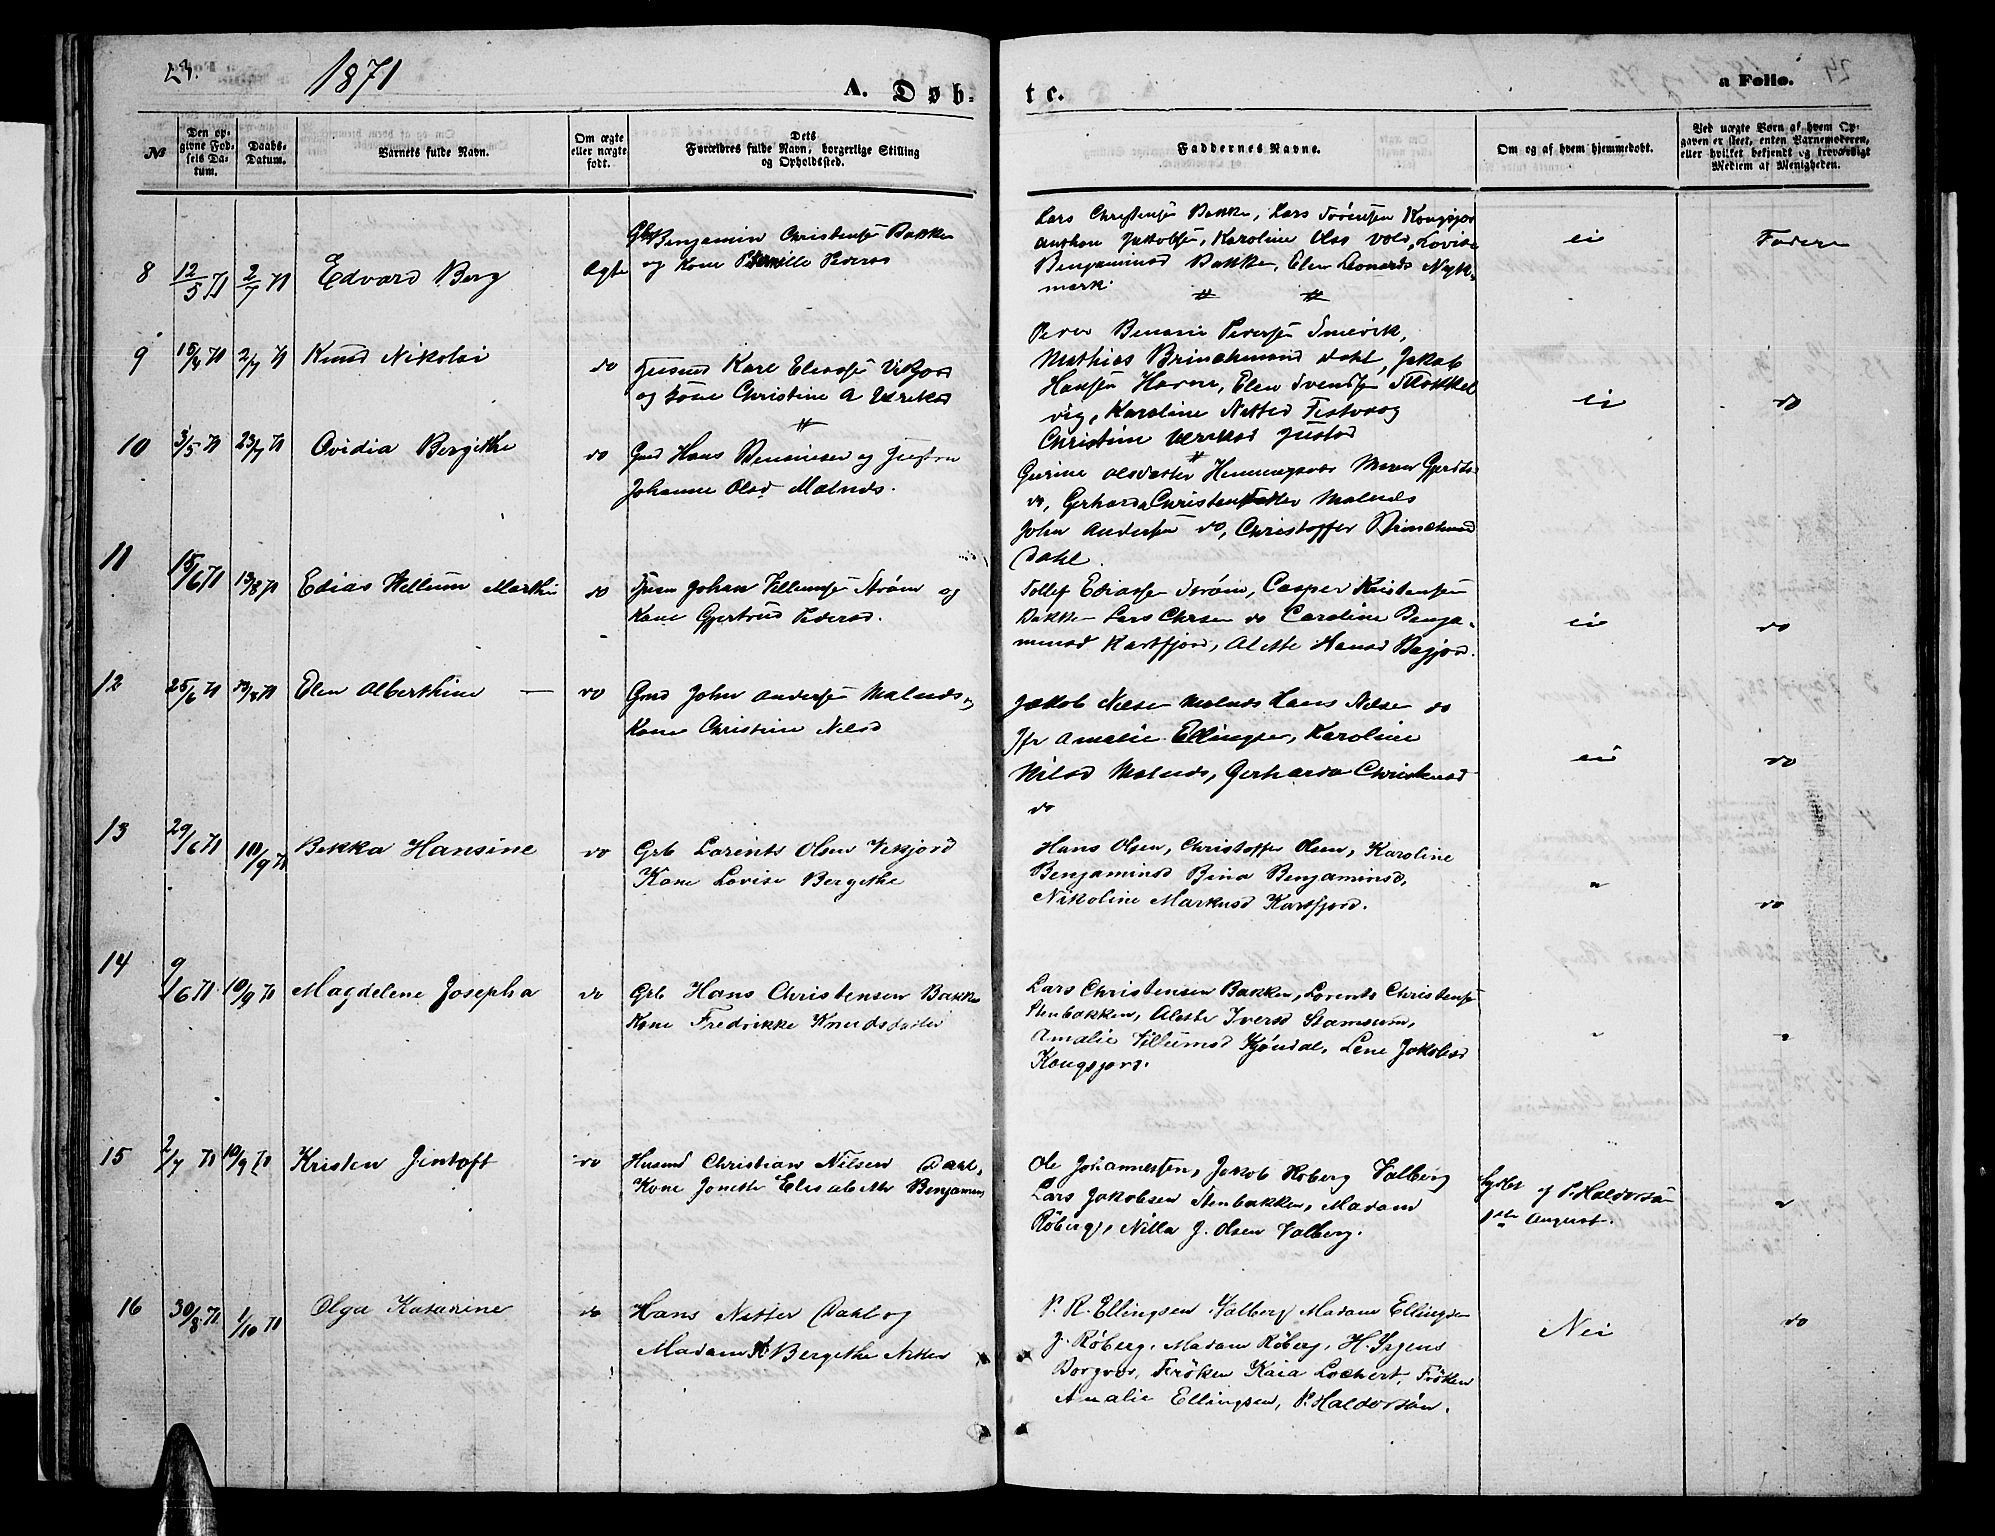 23.
1871
A. Døb-
te.
a Folio.
No
Den op-
givne Fød-
sels Da-
tum.
Daabs-
Datum.
Barnets fulde Navn.
Om ægte
eller uægte
født.
Dets
Forældres fulde Navn, borgerlige Stilling
og Opholdssted.
Faddernes Navne.
Om og af hvem hjemmedøbt.
Ved uægte Børn af hvem Op-
gaven er skeet, enten Barnemoderen,
eller hvilket bekjendt og troværdigt
Medlem af Menigheden.
8 12/5 71 2/7 71 Edvard Berg Egte
Benjamin Christensen Bakken
og Kone Pernille Pedersd
Lars Christensen Bakken, Lars Sørensen Kongsjor
Jakobsen, Karoline Olsd Vold, Lovise
Benjaminsd Bakken, Elen Leonards Myk-
mark.
ei Fader
9 15/4 71 2/7 71 Knud Nikolai do
Husmd Karl Eliassen Vikjord
og Kone Christine A Ulriksd
Peder Benoni Pedersen Smevik,
Mathias Brinchmand Dahl, Jakob
Hansen Havn, Elen Svendsen Stokkel
vig, Karoline Netter Festvaag
Christine Ulriksd Justad
ei do
10 3/5 71 23/7 71 Ovidia Bergithe do
Gmd Hans Benonisen og Hustru
Johanne Olsd Malnæs.
Gurine Olsdatter Henningsvær Maren Gjerdts
do, Gerharda Christensdatter Malnæs
John Andersen do, Christoffer Brinchmd
Dahl.
11 15/6 71 13/8 71 Edias Willum Marthin do
Johan Villumsen Strøm og
Kone Gjertrud Pedersd.
Tollef Ediassen Strøm, Casper Kristensen
Bakken Lars Chrsen do Caroline Benja-
minsd Kartfjord, Alette Hansd Bøgjord.
ei do
12 25/6 71 13/8 71 Elen Alberthine do
Gmd John Andersen Malnæs og
Kone Christine Nilsd
Jakob Nilsen Malnæs Hans Nilsen do
Jfr Amalie Ellingsen, Karoline
Nilsd Malnæs, Gerharda Christensd
do
ei do
13 29/6 71 10/9 71 Bekka Hansine do
Grb Lorents Olsen Vikjord
Kone Lovise Bergethe
Hans Olsen, Christoffer Olsen, Karoline
Benjaminsd Bina Benjaminsd,
Nikoline Markusd Kartfjord.
" do
14 9/6 71 10/9 71 Magdelene Josepha do
Grb Hans Christensen Bakken
Kone Fredrikke Knudsdatter
Lars Christensen Bakken, Lorents Christensen
Stenbakken, Alette Iversd Stamsum,
Amalie Villumsd Kjøndal, Lene Jakobsd
Kongsjord.
" "
15 2/7 71 10/9 71 Kristen Jentoft do
Husmd Christian Nilsen Dahl,
Kone Jonette Elisabeth Benjamins
Ole Johannesen, Jakob Røberg Valberg
Lars Jakobsen Stenbakken, Madam
Røberg, Nilla J. Olsen Valberg.
af P. Haldorsøn
1ste August.
"
16 30/8 71 1/10 71 Olga Katarine do
Hans Netter Dahl og
Madam A Bergethe Netter
P. R. Ellingsen Valberg Madam Ellingsen
J. Røberg, Madam Røberg, H. Irgens
Borgvær, Frøken Kaia Lochert, Frøken
Amalie Ellingsen, P. Haldorsøn.
Nei do